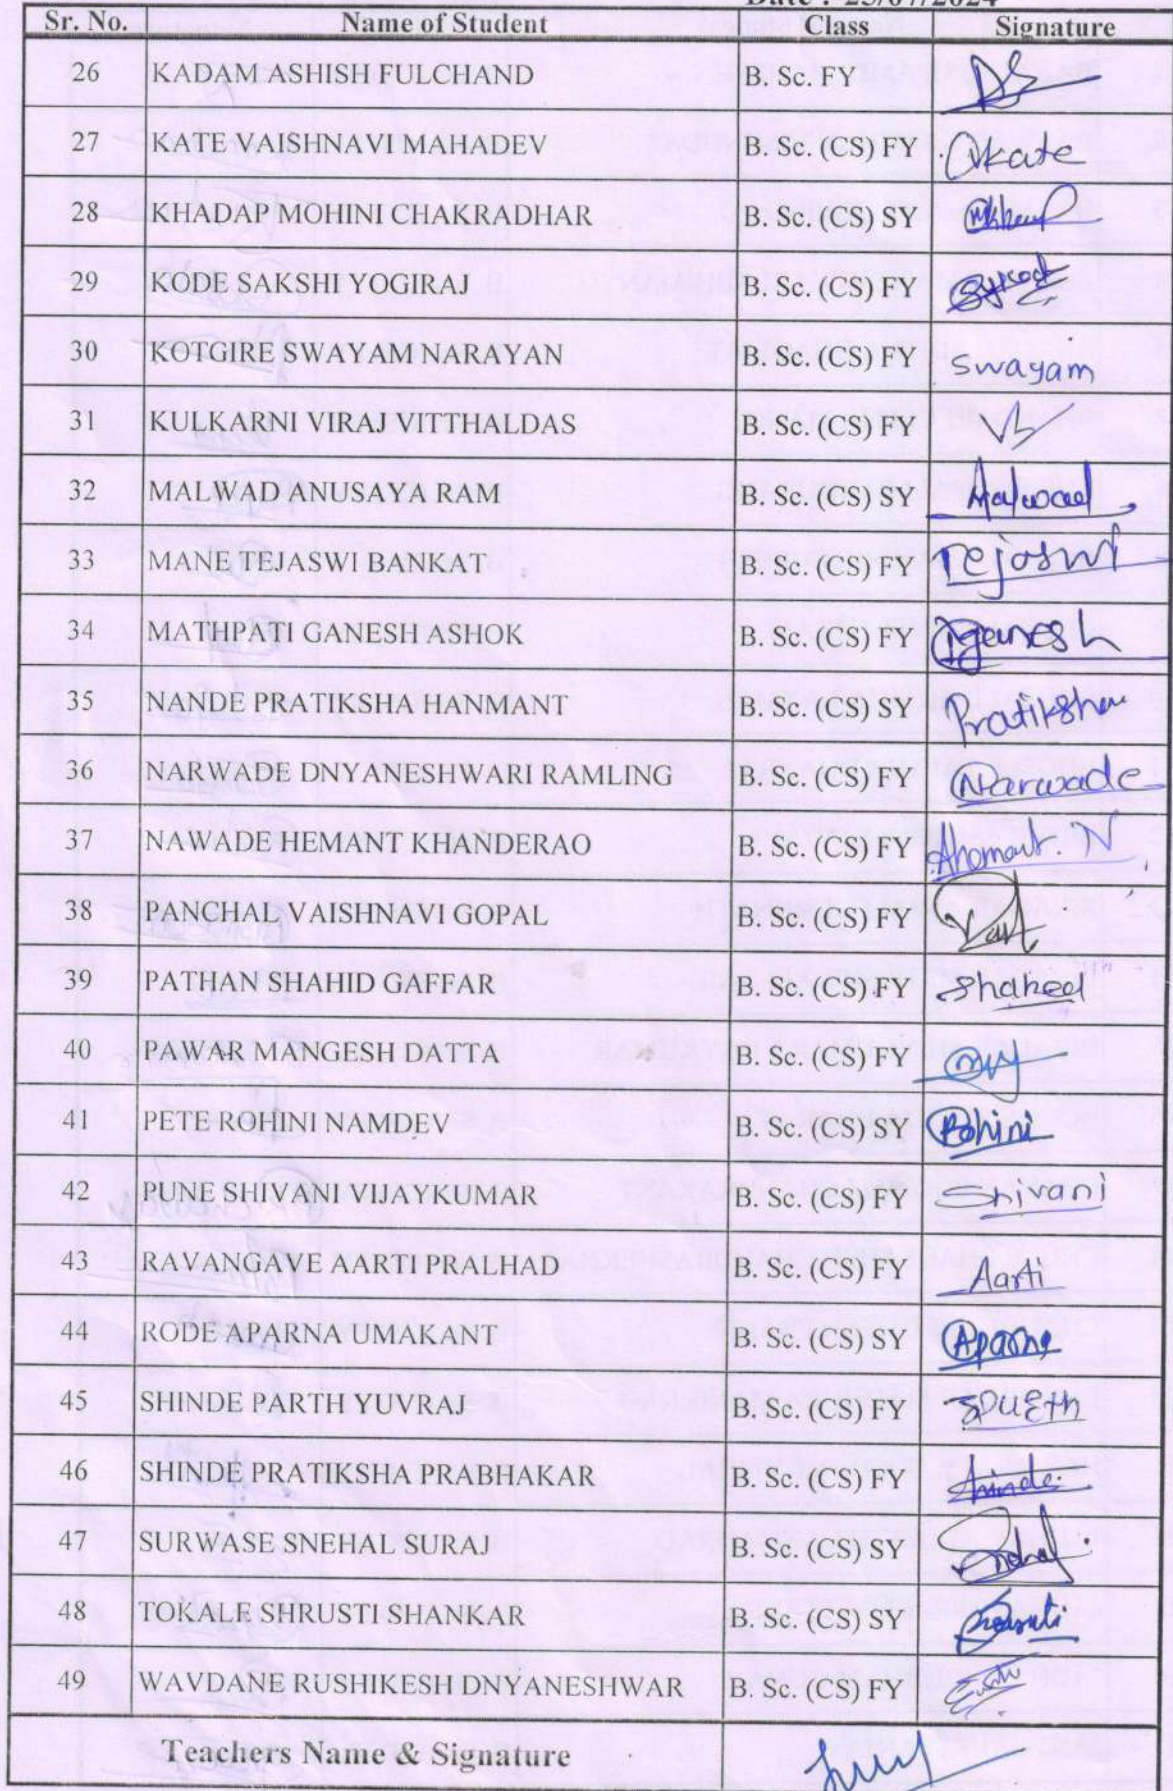 Date : 25/07/2024
Sr. No. Name of Student Class Signature
26 KADAM ASHISH FULCHAND B. Sc. FY
27 KATE VAISHNAVI MAHADEV B. Sc. (CS) FY Vkate
28 KHADAP MOHINI CHAKRADHAR B. Sc. (CS) SY
29 KODE SAKSHI YOGIRAJ B. Sc. (CS) FY
30 KOTGIRE SWAYAM NARAYAN B. Sc. (CS) FY swayam
31 KULKARNI VIRAJ VITTHALDAS B. Sc. (CS) FY
32 MALWAD ANUSAYA RAM B. Sc. (CS) SY Malwad
33 MANE TEJASWI BANKAT B. Sc. (CS) FY Tejaswi
34 MATHPATI GANESH ASHOK B. Sc. (CS) FY Ganesh
35 NANDE PRATIKSHA HANMANT B. Sc. (CS) SY Pratiksha
36 NARWADE DNYANESHWARI RAMLING B. Sc. (CS) FY Narwade
37 NAWADE HEMANT KHANDERAO B. Sc. (CS) FY
38 PANCHAL VAISHNAVI GOPAL B. Sc. (CS) FY
39 PATHAN SHAHID GAFFAR B. Sc. (CS) FY Shaheed
40 PAWAR MANGESH DATTA B. Sc. (CS) FY
41 PETE ROHINI NAMDEV B. Sc. (CS) SY Rohini
42 PUNE SHIVANI VIJAYKUMAR B. Sc. (CS) FY Shivani
43 RAVANGAVE AARTI PRALHAD B. Sc. (CS) FY Aarti
44 RODE APARNA UMAKANT B. Sc. (CS) SY Aparna
45 SHINDE PARTH YUVRAJ B. Sc. (CS) FY
46 SHINDE PRATIKSHA PRABHAKAR B. Sc. (CS) FY Shinde
47 SURWASE SNEHAL SURAJ B. Sc. (CS) SY Snehal
48 TOKALE SHRUSTI SHANKAR B. Sc. (CS) SY
49 WAVDANE RUSHIKESH DNYANESHWAR B. Sc. (CS) FY
Teachers Name & Signature